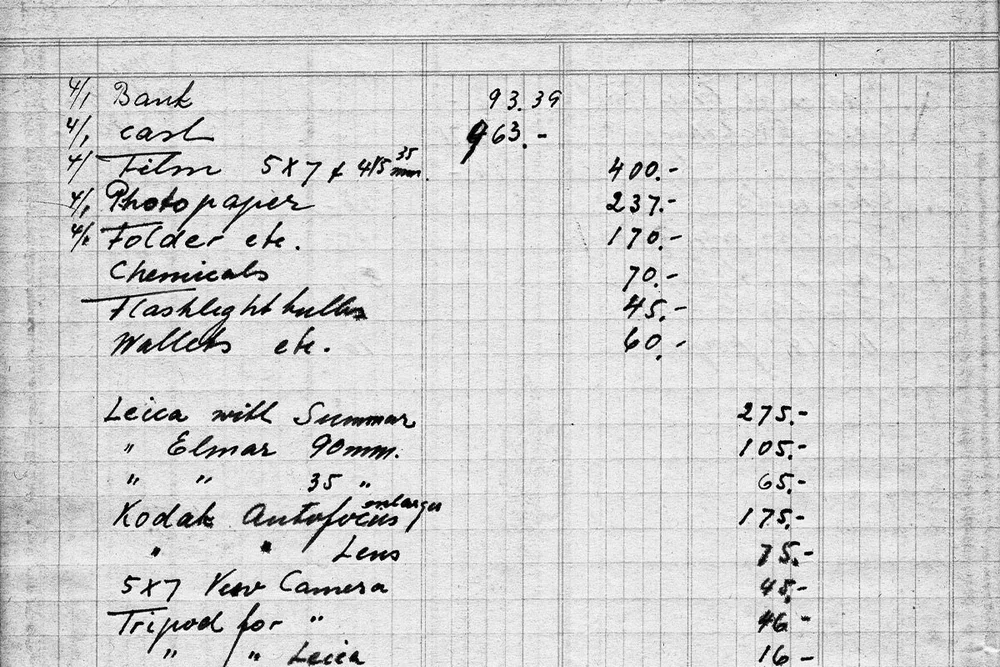 4/1 Bank 93.39
4/1 cash 963.-
4/1 Film 5X7 & 4/5 35 mm. 400.-
4/1 Photo paper 237.-
4/1 Folder etc. 170.-
Chemicals 70.-
Flashlight bulbs 45.-
Wallets etc. 60.-
Leica with Summar 275.-
" Elmar 90mm. 105.-
" " 35 " 65.-
Kodak Autofocus enlarger 175.-
" " Lens 75.-
5X7 View Camera 45.-
Tripod for " 46-
" " Leica 16-